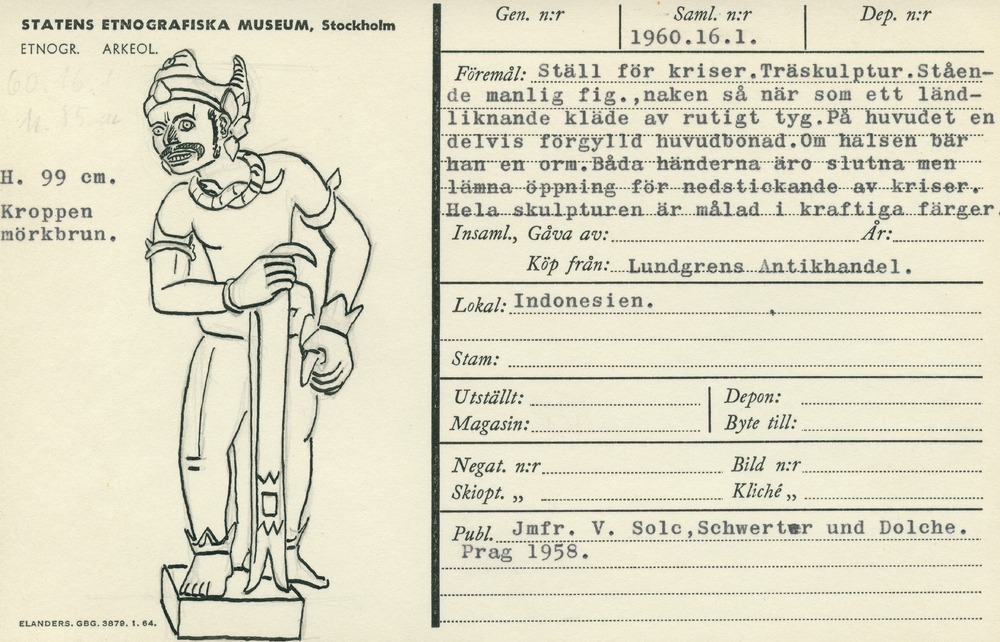 STATENS ETNOGRAFISKA MUSEUM, Stockholm
ETNOGR. ARKEOL.
60.16.1
H. 99 cm.
Kroppen
mörkbrun.
ELANDERS. GBG. 3879. 1. 64.
Gen. n:r Saml. n:r Dep. n:r
1960.16.1.
Föremål: Ställ för kriser.Träskulptur.Ståen-
de manlig fig.,naken så när som ett länd-
liknande kläde av rutigt tyg.På huvudet en
delvis förgylld huvudbonad.Om halsen bär
han en orm.Båda händerna äro slutna men
lämna öppning för nedstickande av kriser.
Hela skulpturen är målad i kraftiga färger.
Insaml., Gåva av: År:
Köp från: Lundgrens Antikhandel.
Lokal: Indonesien.
Stam:
Utställt: Depon:
Magasin: Byte till:
Negat. n:r Bild n:r
Skiopt. „ Kliché „
Publ. Jmfr. V. Solc,Schwerter und Dolche.
Prag 1958.